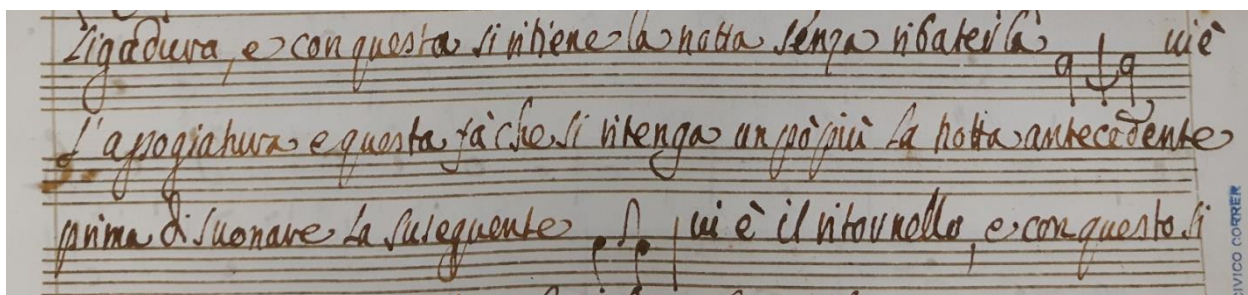 Ligadura, e con questa si ritiene la notta senza ribaterla vi è
l'apogiatura e questa fà che si ritenga un pò più la notta antecedente
prima di suonare la suseguente vi è il ritornello, e con questo si
CIVICO CORRER